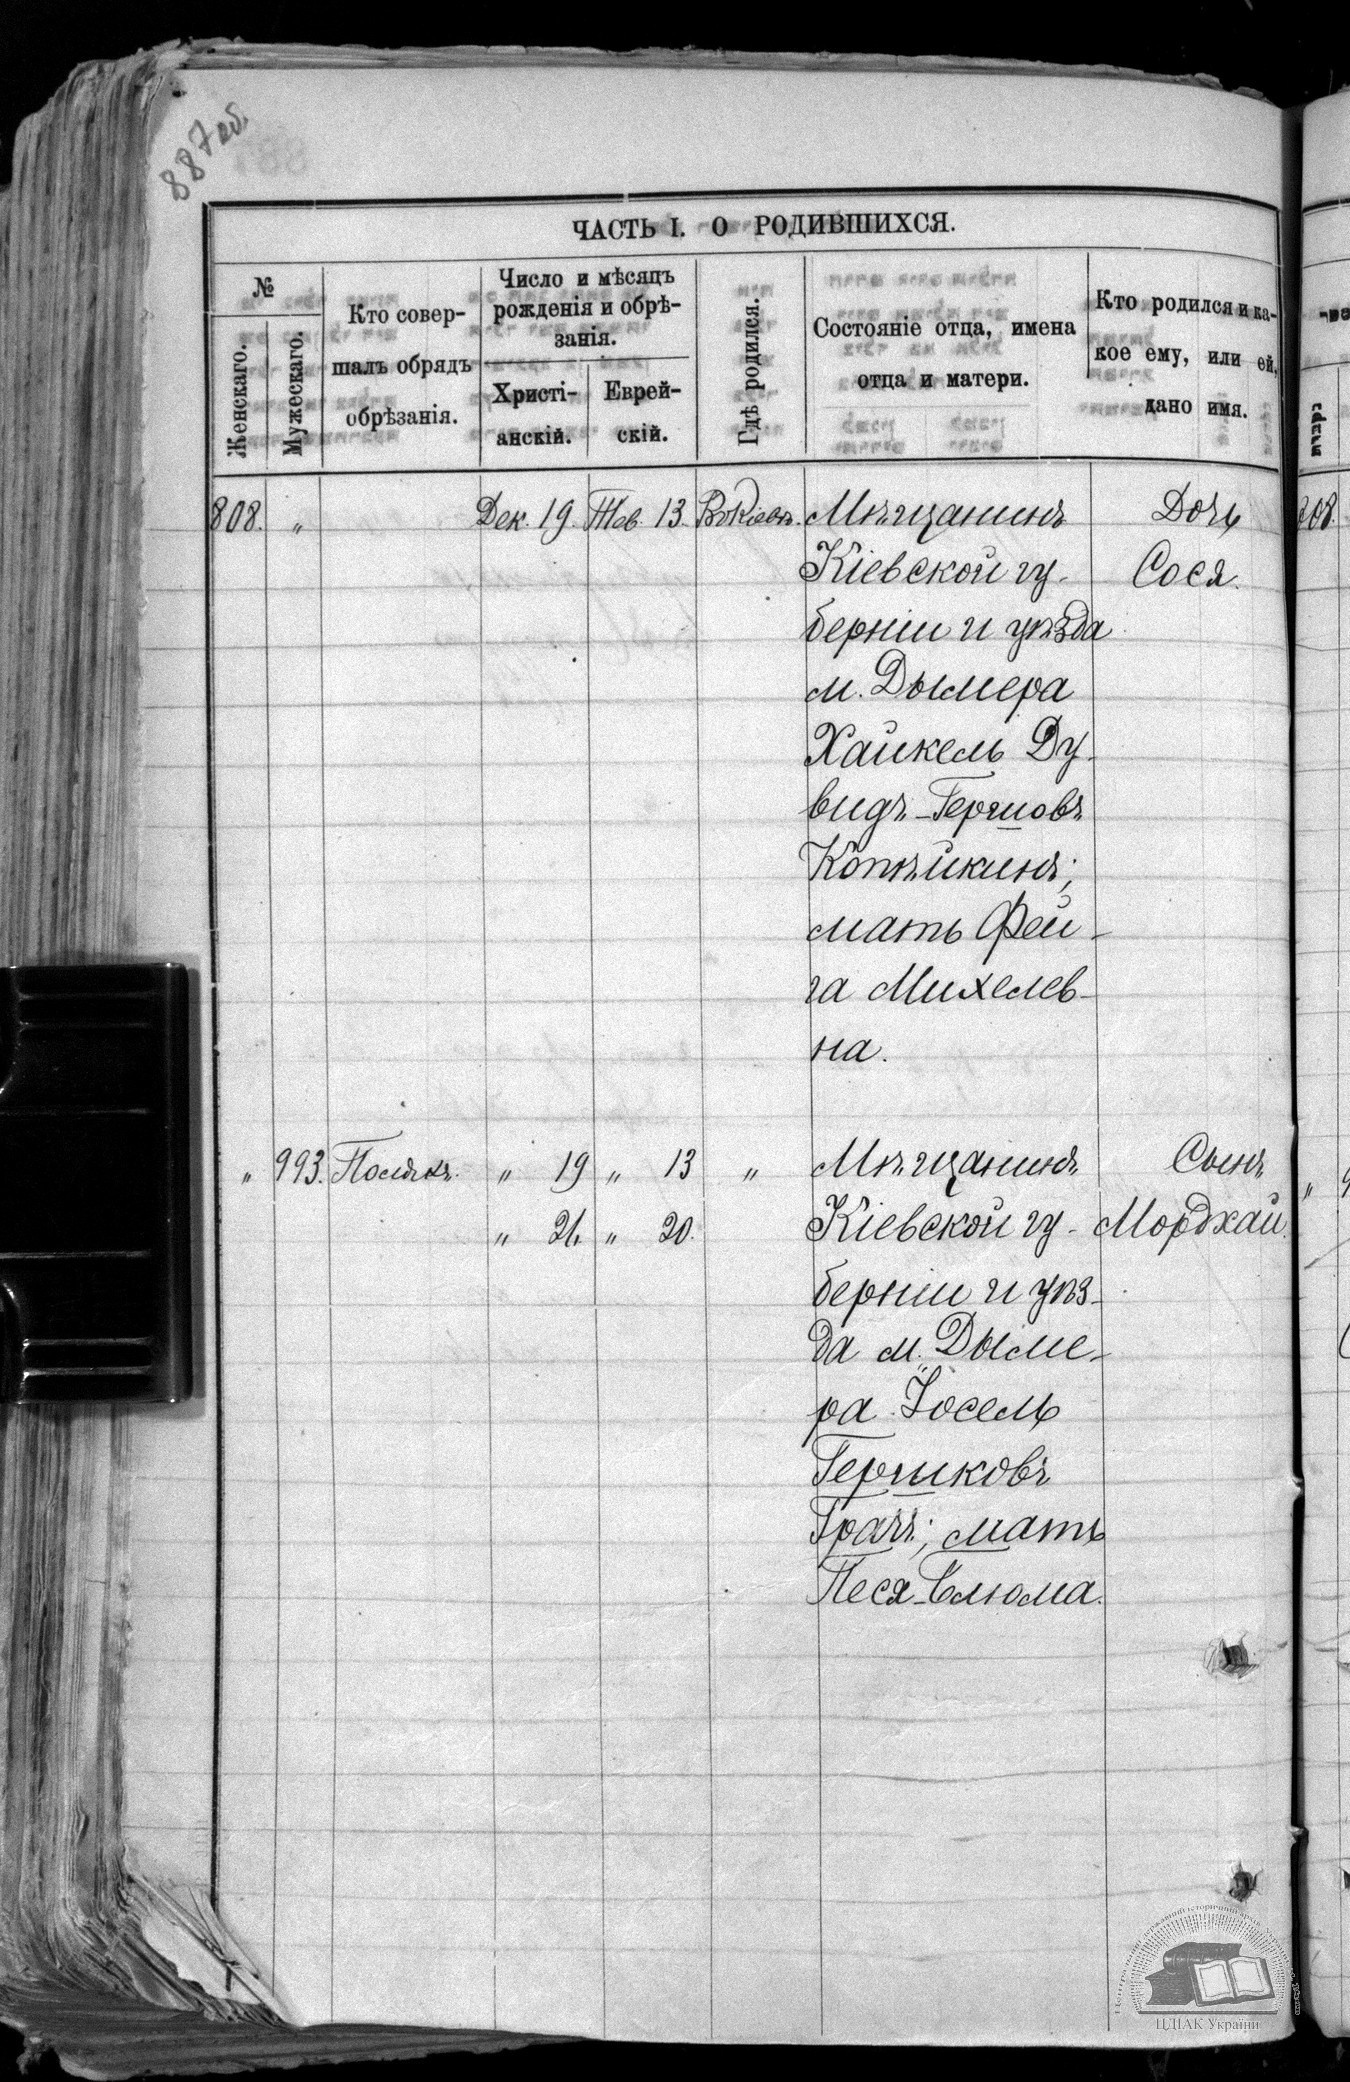 887 об.
ЧАСТЬ I. О РОДИВШИХСЯ.
№
Женскаго.
Мужескаго.
Кто совер-
шалъ обрядъ
обрѣзанія.
Число и мѣсяцъ
рожденія и обрѣ-
занія.
Христі-
анскій.
Еврей-
скій.
Гдѣ родился.
Состояніе отца, имена
отца и матери.
Кто родился и ка-
кое ему, или ей,
дано имя.
808. " Дек. 19. Тев. 13. Въ Кіевѣ. Мѣщанинъ Дочь
Кіевской гу- Сося.
берніи и уѣзда
м. Дымера
Хайкель Ду-
видъ-Гершовъ
Копѣйкинъ;
мать Фей-
га Михелев-
на.
" 993. Полякъ. " 19 " 13 " Мѣщанинъ Сынъ
" 26. " 20. Кіевской гу- Мордхай.
берніи и уѣз-
да м. Дыме-
ра Іосель
Гершковъ
Грачъ; мать
Песя-Блюма.
ЦДІАК України